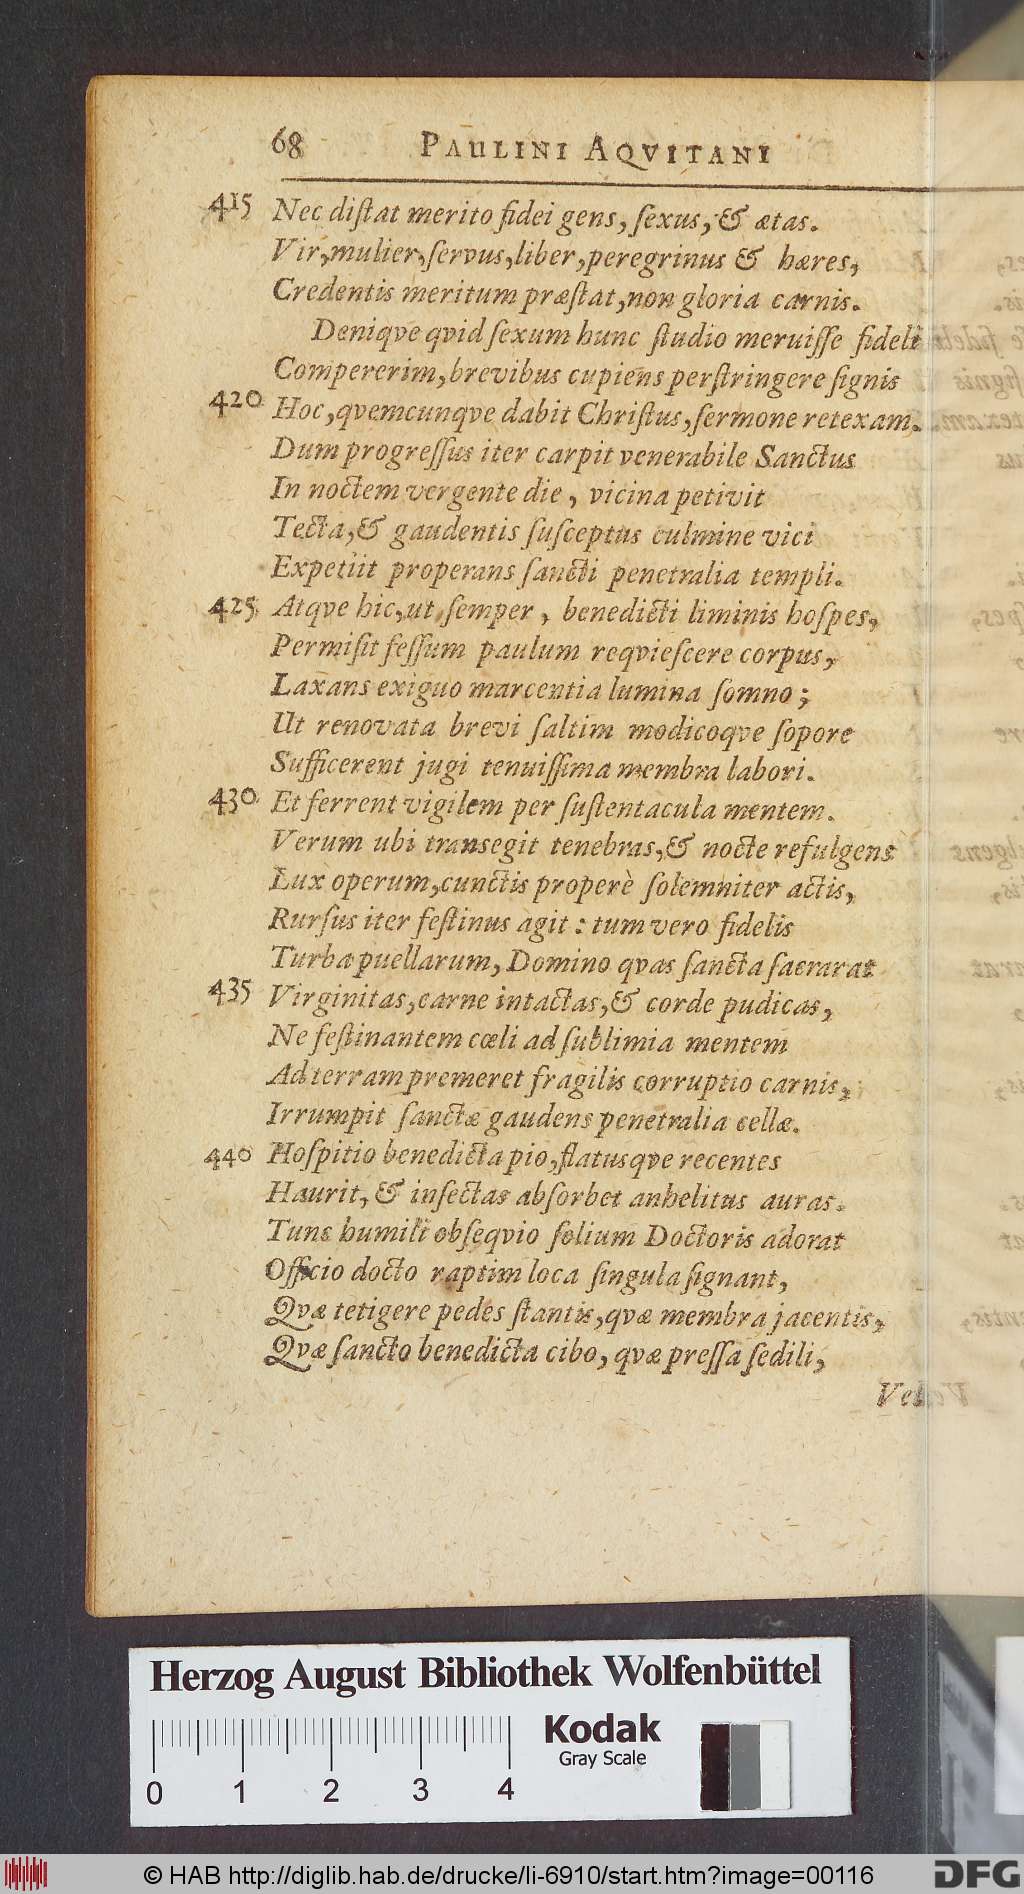 68 PAULINI AQVITANI
415 Nec diſtat merito fidei gens, ſexus, & ætas.
Vir, mulier, ſervus, liber, peregrinus & hæres,
Credentis meritum præſtat, non gloria carnis.
Deniqve qvid ſexum hunc ſtudio meruiſſe fideli
Compererim, brevibus cupiens perſtringere ſignis
420 Hoc, qvemcunqve dabit Chriſtus, ſermone retexam.
Dum progreſſus iter carpit venerabile Sanctus
In noctem vergente die, vicina petivit
Tecta, & gaudentis ſuſceptus culmine vici
Expetiit properans ſancti penetralia templi.
425 Atqve hic, ut ſemper, benedicti liminis hoſpes,
Permiſit feſſum paulum reqvieſcere corpus,
Laxans exiguo marcentia lumina ſomno;
Ut renovata brevi ſaltim modicoqve ſopore
Sufficerent jugi tenuiſſima membra labori.
430 Et ferrent vigilem per ſuſtentacula mentem.
Verum ubi transegit tenebras, & nocte refulgens
Lux operum, cunctis properè ſolemniter actis,
Rurſus iter feſtinus agit: tum vero fidelis
Turba puellarum, Domino qvas ſancta ſacrarat
435 Virginitas, carne intactas, & corde pudicas,
Ne feſtinantem cœli ad ſublimia mentem
Ad terram premeret fragilis corruptio carnis,
Irrumpit ſanctæ gaudens penetralia cellæ.
440 Hoſpitio benedicta pio, flatusqve recentes
Haurit, & inſectas abſorbet anhelitus auras.
Tunc humili obſeqvio ſolium Doctoris adorat
Officio docto raptim loca ſingula ſignant,
Qvæ tetigere pedes ſtantis, qvæ membra jacentis,
Qvæ ſancto benedicta cibo, qvæ preſſa ſedili,
Vel
Herzog August Bibliothek Wolfenbüttel
0 1 2 3 4
Kodak
Gray Scale
© HAB http://diglib.hab.de/drucke/li-6910/start.htm?image=00116
DFG